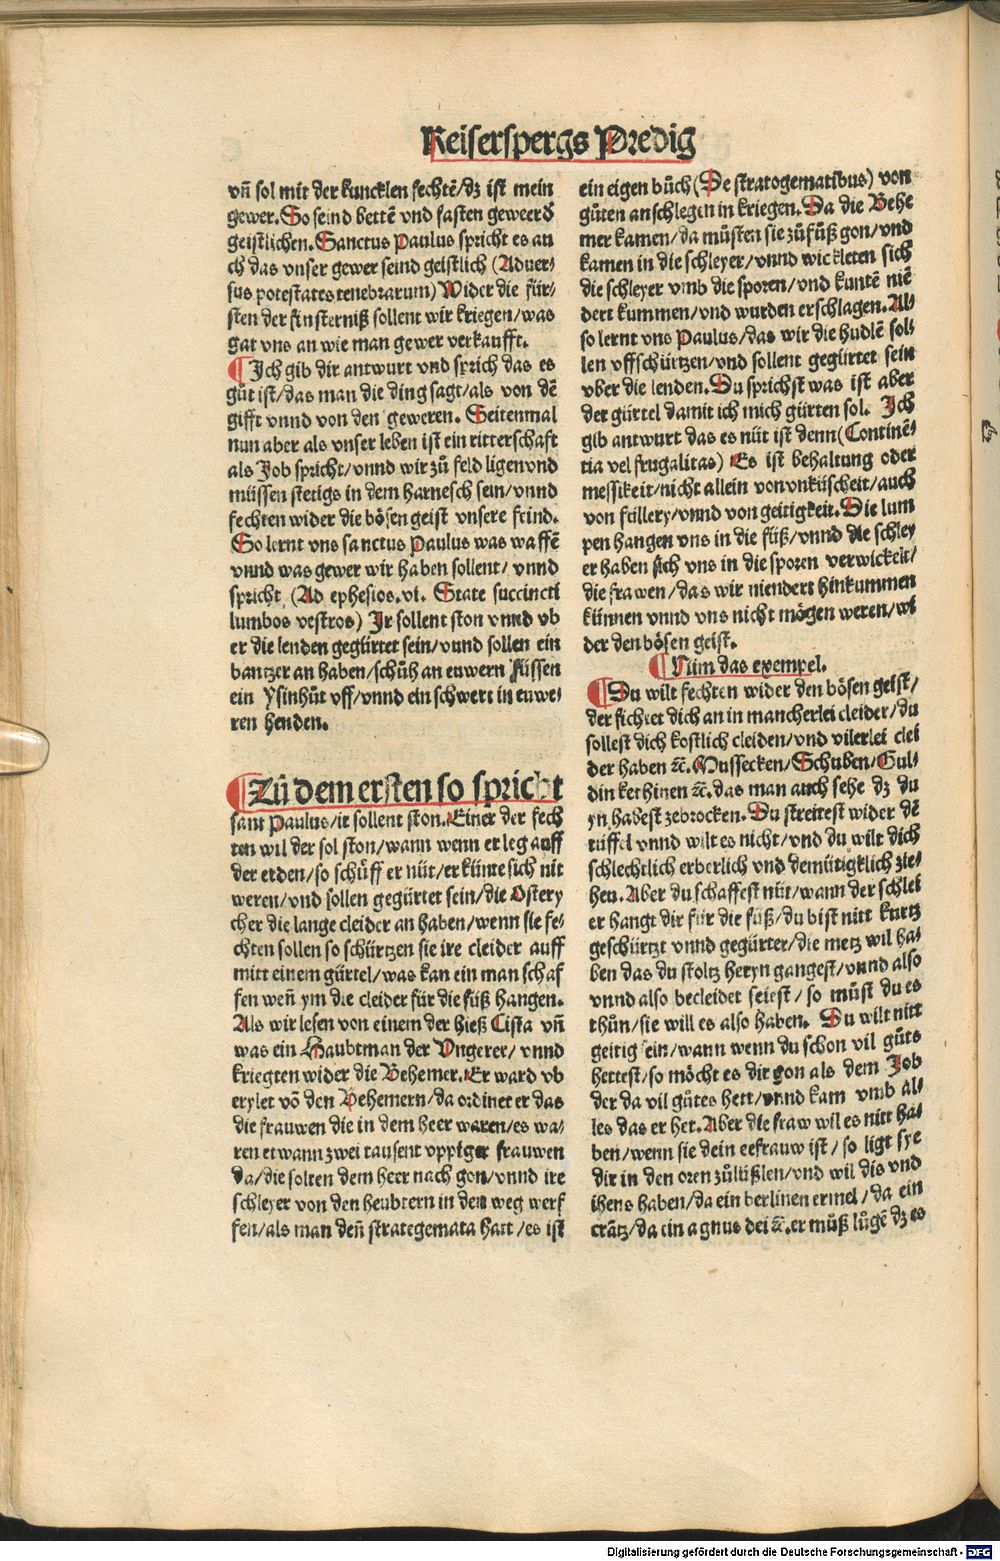 Keiserspergs Predig
vn̄ sol mit der kuncklen fechtē/dz ist mein
gewer. So seind bettē vnd fasten geweer d̕
geistlichen. Sanctus Paulus spricht es au
ch das vnser gewer seind geistlich (Aduer⸗
sus potestates tenebrarum) Wider die für⸗
sten der finsterniß sollent wir kriegen/was
gat vns an wie man gewer verkaufft.
¶ Ich gib dir antwurt vnd sprich das es
gůt ist/das man die ding sagt/als von dē
gifft vnnd von den geweren. Seitenmal
nun aber als vnser leben ist ein ritterschaft
als Job spricht/vnnd wir zů feld ligen vnd
müssen stetigs in dem harnesch sein/vnnd
fechten wider die bösen geist vnsere feind.
So lernt vns sanctus Paulus was waffē
vnnd was gewer wir haben sollent/ vnnd
spricht (Ad ephesios.vi. State succincti
lumbos vestros) Ir sollent ston vnnd vb
er die lenden gegürtet sein/vnnd sollen ein
bantzer an haben/schůh an euwern füssen
ein Ysinhůt vff/vnnd ein schwert in euwe⸗
ren henden.
¶ Zů dem ersten so spricht
sant Paulus/ir sollent ston. Einer der fech
ten wil der sol ston/wann wenn er leg auff
der erden/so schůff er nüt/er künte sich nit
weren/vnd sollen gegürtet sein/die Ostery
cher die lange cleider an haben/wenn sie fe⸗
chten sollen so schürtzen sie ire cleider auff
mitt einem gürtel/was kan ein man schaf
fen wen̄ ym die cleider für die füß hangen.
Als wir lesen von einem der hieß Cista vn̄
was ein Haubtman der Vngerer/ vnnd
kriegten wider die Behemer. Er ward vb
erylet vō den Behemern/da ordinet er das
die frauwen die in dem heer waren/es wa⸗
ren etwann zwei tausent vppiger frauwen
da/die solten dem heer nach gon/vnnd ire
schleyer von den heubtern in den weg werf
fen/als man den̄ strategemata hatt/es ist
ein eigen bůch (De stratogematibus) von
gůten anschlegen in kriegen. Da die Behe
mer kamen/da můsten sie zůfůß gon/vnd
kamen in die schleyer/vnnd wickleten sich
die schleyer vmb die sporen/vnd kuntē niē
dert kummen/vnd wurden erschlagen. Al⸗
so lernt vns Paulus/das wir die hudlē sol⸗
len vffschürtzen/vnd sollent gegürtet sein
vber die lenden. Du sprichst was ist aber
der gürtel damit ich mich gürten sol. Ich
gib antwurt das es nüt ist denn (Continē⸗
tia vel frugalitas) Es ist behaltung oder
messikeit/nicht allein von vnküscheit/auch
von füllery/vnnd von geitigkeit. Die lum
pen hangen vns in die füß/vnnd die schley
er haben sich vns in die sporen verwickelt/
die frawen/das wir niendert hinkummen
künnen vnnd vns nicht mögen weren/wi
der den bösen geist.
¶ Nüm das exempel.
¶ Du wilt fechten wider den bösen geist/
der fichtet dich an in mancherlei cleider/du
sollest dich kostlich cleiden/vnd vilerlei clei
der haben ꝛc. Mussecken/Schuben/Gul⸗
din kethinen ꝛc. das man auch sehe dz du
yn habest zebrocken. Du streitest wider dē
tüffel vnnd wilt es nicht/vnd du wilt dich
schlechtlich erberlich vnd demütigklich zie⸗
hen. Aber du schaffest nüt/wann der schlei
er hangt dir für die füß/du bist nitt kurtz
geschürtzt vnnd gegürtet/die metz wil ha⸗
ben das du stoltz heryn gangest/vnnd also
vnnd also becleidet seiest/ so můst du es
thůn/sie will es also haben. Du wilt nitt
geitig sein/wann wenn du schon vil gůts
hettest/so möcht es dir gon als dem Job
der da vil gůtes hett/vnnd kam vmb al⸗
les das er het. Aber die fraw wil es nitt ha⸗
ben/wenn sie dein eefraw ist/ so ligt sye
dir in den oren zůlüßlen/vnd wil dis vnd
ihens haben/da ein berlinen ermel/da ein
crātz/da ein agnus dei ꝛc. er můß lůgē dz es
Digitalisierung gefördert durch die Deutsche Forschungsgemeinschaft - DFG